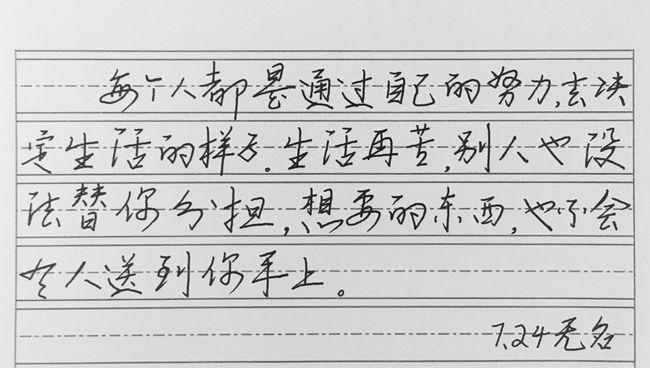 每个人都是通过自己的努力,去决
定生活的样子.生活再苦,别人也没
法替你分担,想要的东西,也不会
有人送到你手上。
7.24无名